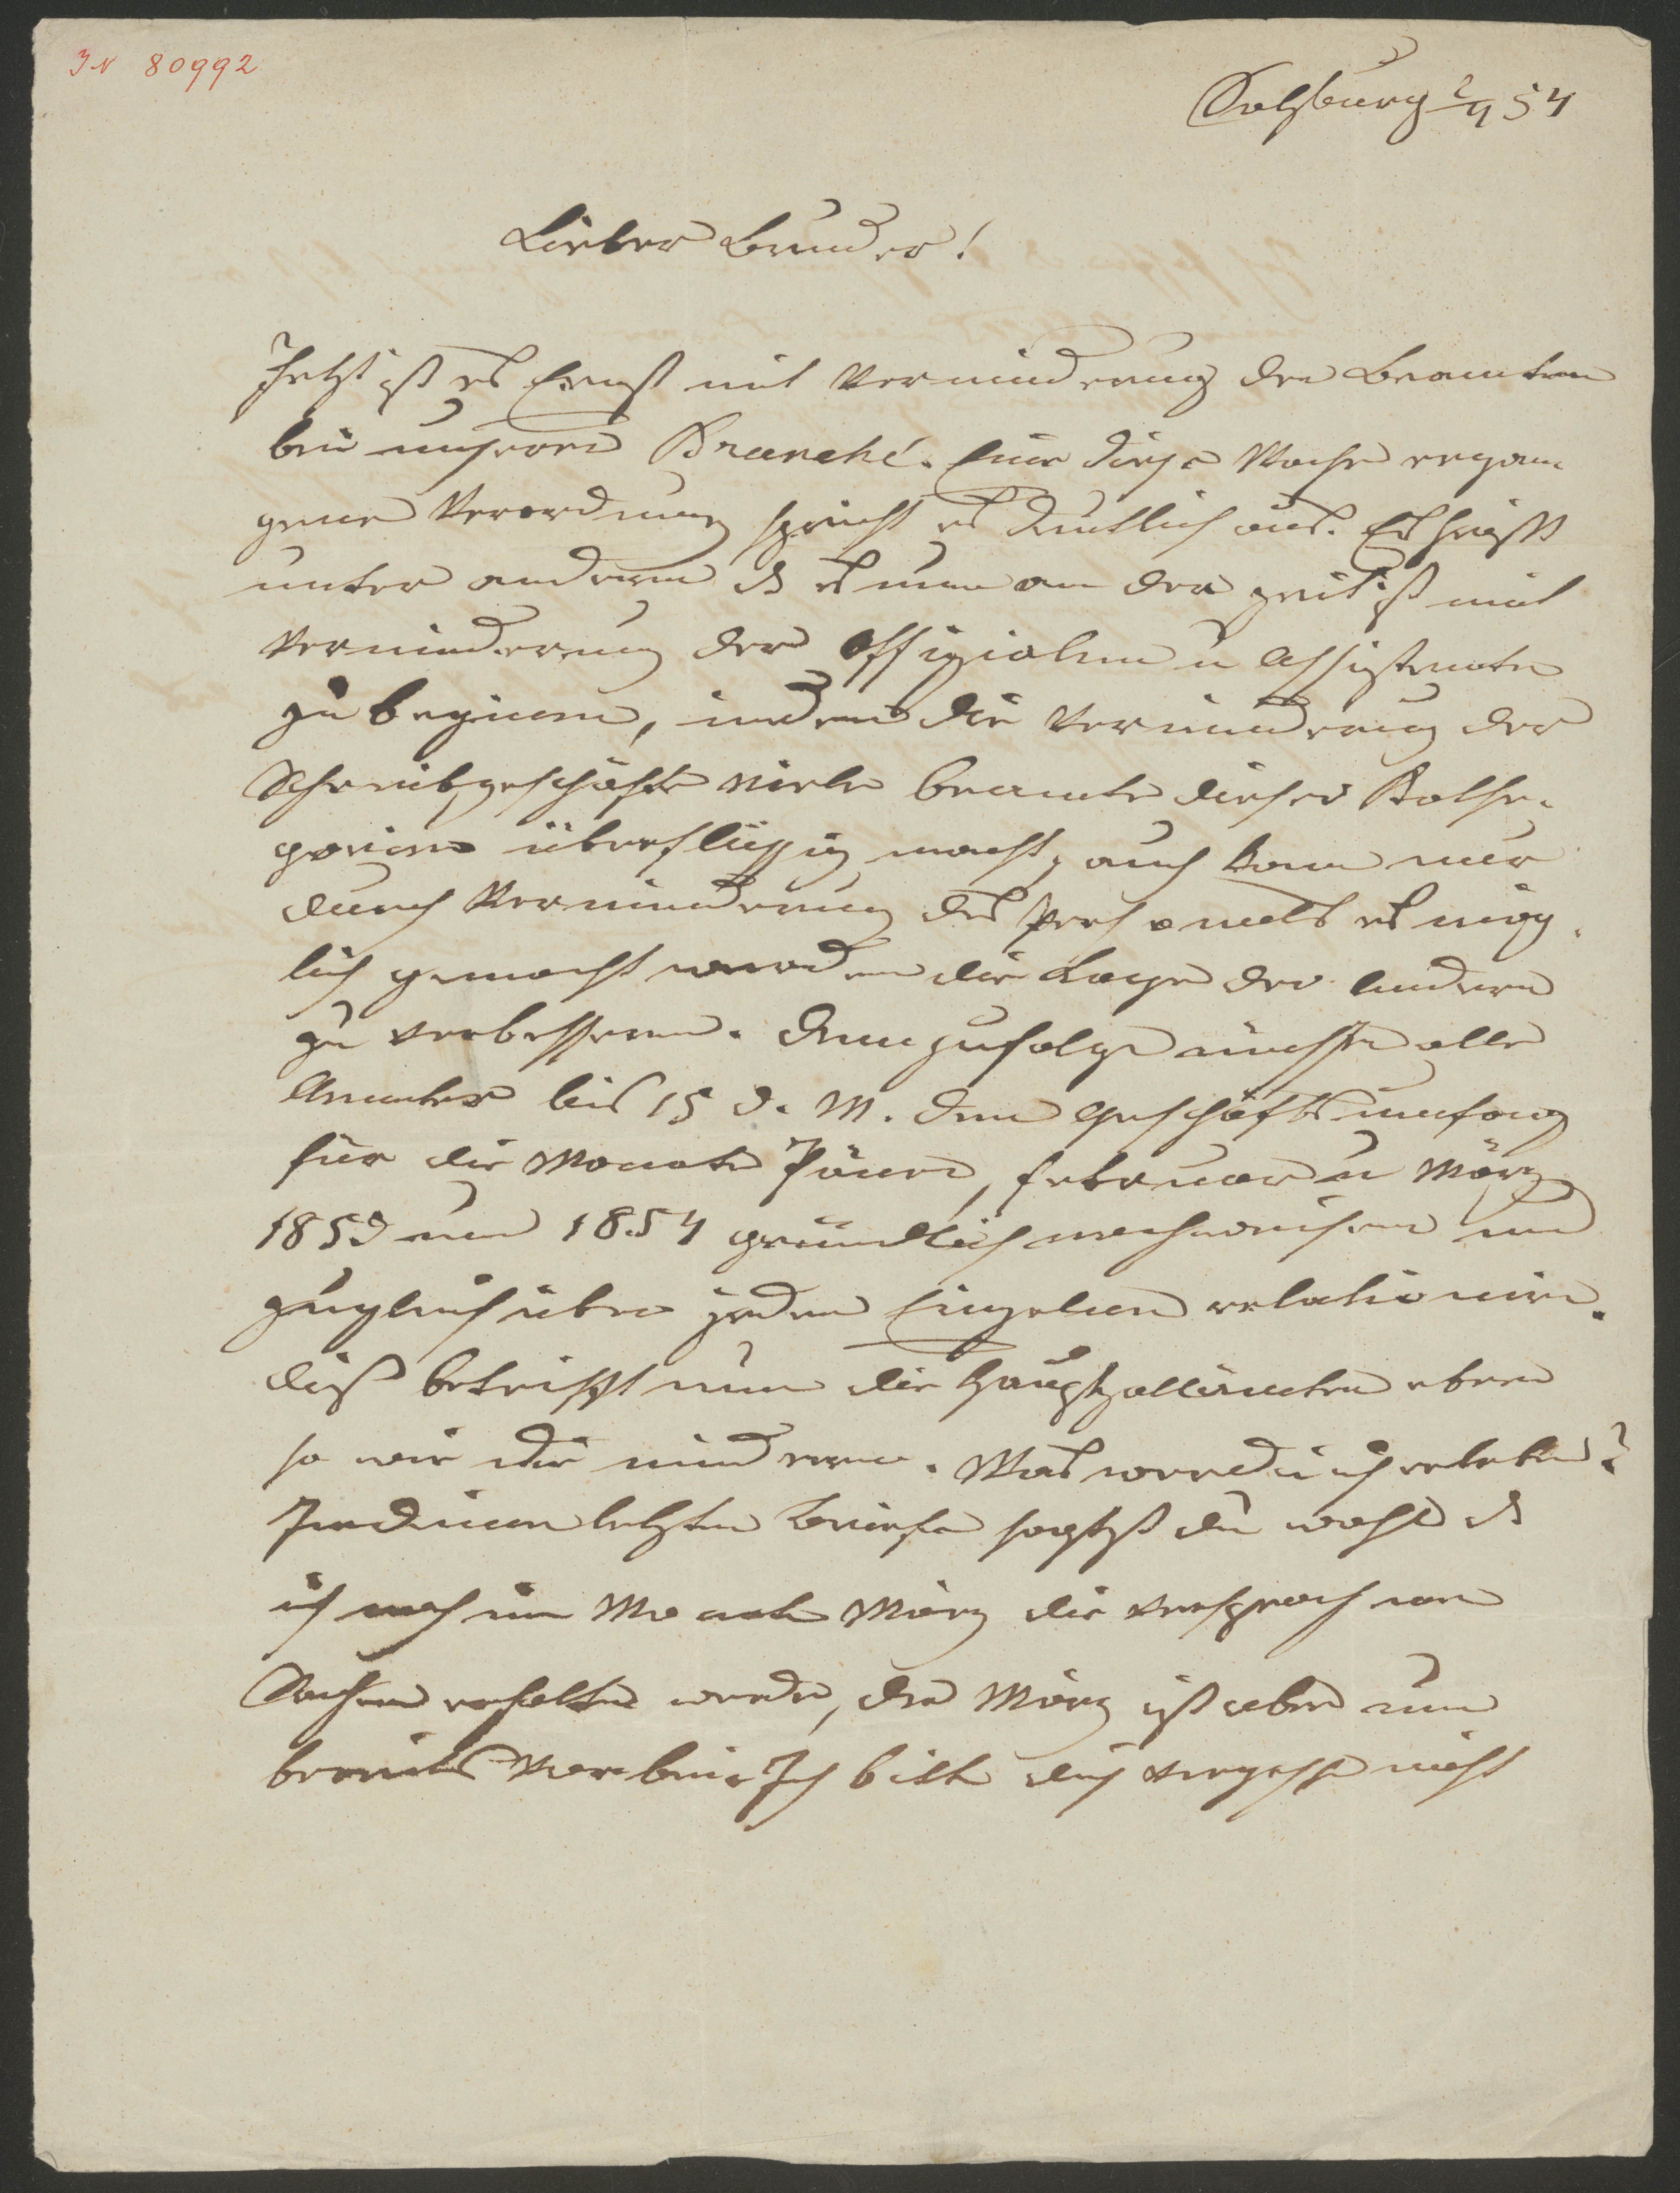 IN 80992
Salzburg 2/4 54
Lieber Bruder!
Jetzt ist es Ernst mit Verminderung der Beamten
bei unserer Branche. Eine diese Woche ergan
gene Verordnung spricht es deutlich aus. Es heißt
unter anderm ds es nun an der Zeit ist mit
Verminderung der Offizialen u Assistenten
zu beginnen, indem die Verminderung der
Schreibgeschäfte viele Beamte dieser Kathe-
gorien überflüssig macht, auch kann nur
durch Verminderung des Personals es mög-
lich gemacht werden die Lage der Andern
zu verbessern. Demzufolge müssen alle
Aemter bis 15 d. M. den Geschäftsumfang
für die Monate Jäner, Februar u März
1853 und 1854 gründlich nachweisen und
zugleich über jeden Einzelnen relationiren.
Dieß betrifft nun die Hauptzollämter eben
so wie die mindern. Was werde ich erleben?
In deinem letzten Briefe sagtest du wohl ds
ich noch im Monate März die versprochenen
Sachen erhalten werde, der März ist aber nun
bereits vorbei. Ich bitte dich vergesse nicht